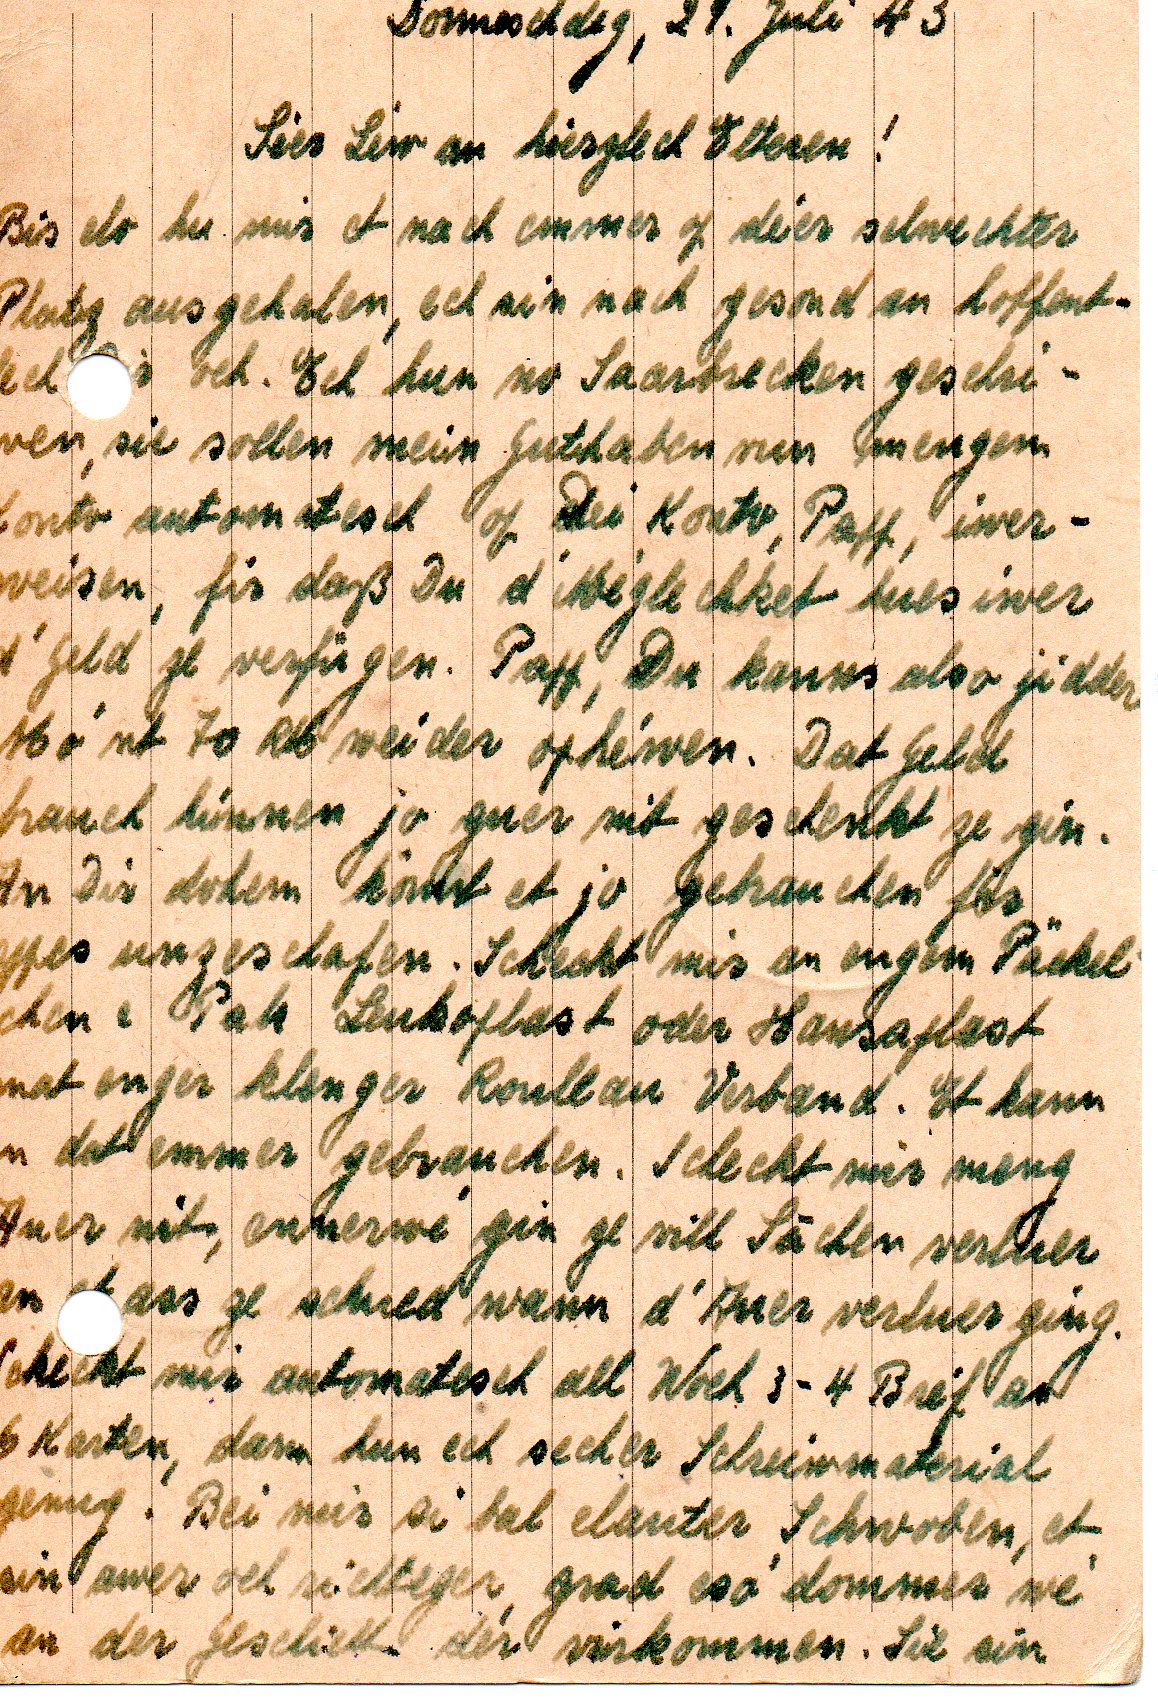 Donneschdeg, 29. Juli 43
Léif an hierzlech Elteren!
Bis elo hu mir et nach emmer op déier schwechter
Platz ausgehalen, ech sin nach gesond an hoffent-
lech Dir och. Ech hun no Saarbrecken geschri-
wen, sie sollen mein Guthaben vun mengem
Konto automatesch op Dei Konto, Papp, iwer-
weisen, fir daß Du d'Méglechket hues iwer
d'Geld ze verfügen. Papp, Du kanns also jidder
Mo'nt 70 RM weider ophéwen. Dat Geld
brauch hinnen jo guer nit geschenkt ze gin.
An Dir dohem könnt et jo gebrauchen fir
eppes unzeschafen. Scheckt mir an engem Päckel-
chen e Pak Leukoplast oder Hansaplast
mat enger klenger Roulleau Verband. Et kann
een dat emmer gebrauchen. Scheckt mir meng
Auer nit, ennerwé gin ze vill Sachen verluer
an et ass ze schued wann d'Auer verluer ging.
Scheckt mir automatesch all Woch 3-4 Bréif an
6 Karten, dann hun ech secher Schreiwmaterial
genug. Bei mir si bal elauter Schwoben, et
sin awer och richteger, grad esó dommer wé
an der Geschicht déi virkommen. Sie sin